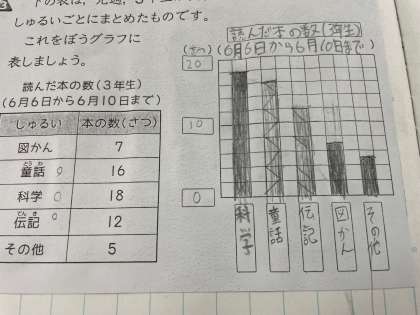 しゅるいごとにまとめたものです。
これをぼうグラフに
表しましょう。
読んだ本の数(3年生)
(6月6日から6月10日まで)
しゅるい 本の数(さつ)
図かん 7
童話 16
科学 18
伝記 12
その他 5
読んだ本の数(3年生)
(さつ) (6月6日から6月10日まで)
20
10
0
科学
童話
伝記
図かん
その他